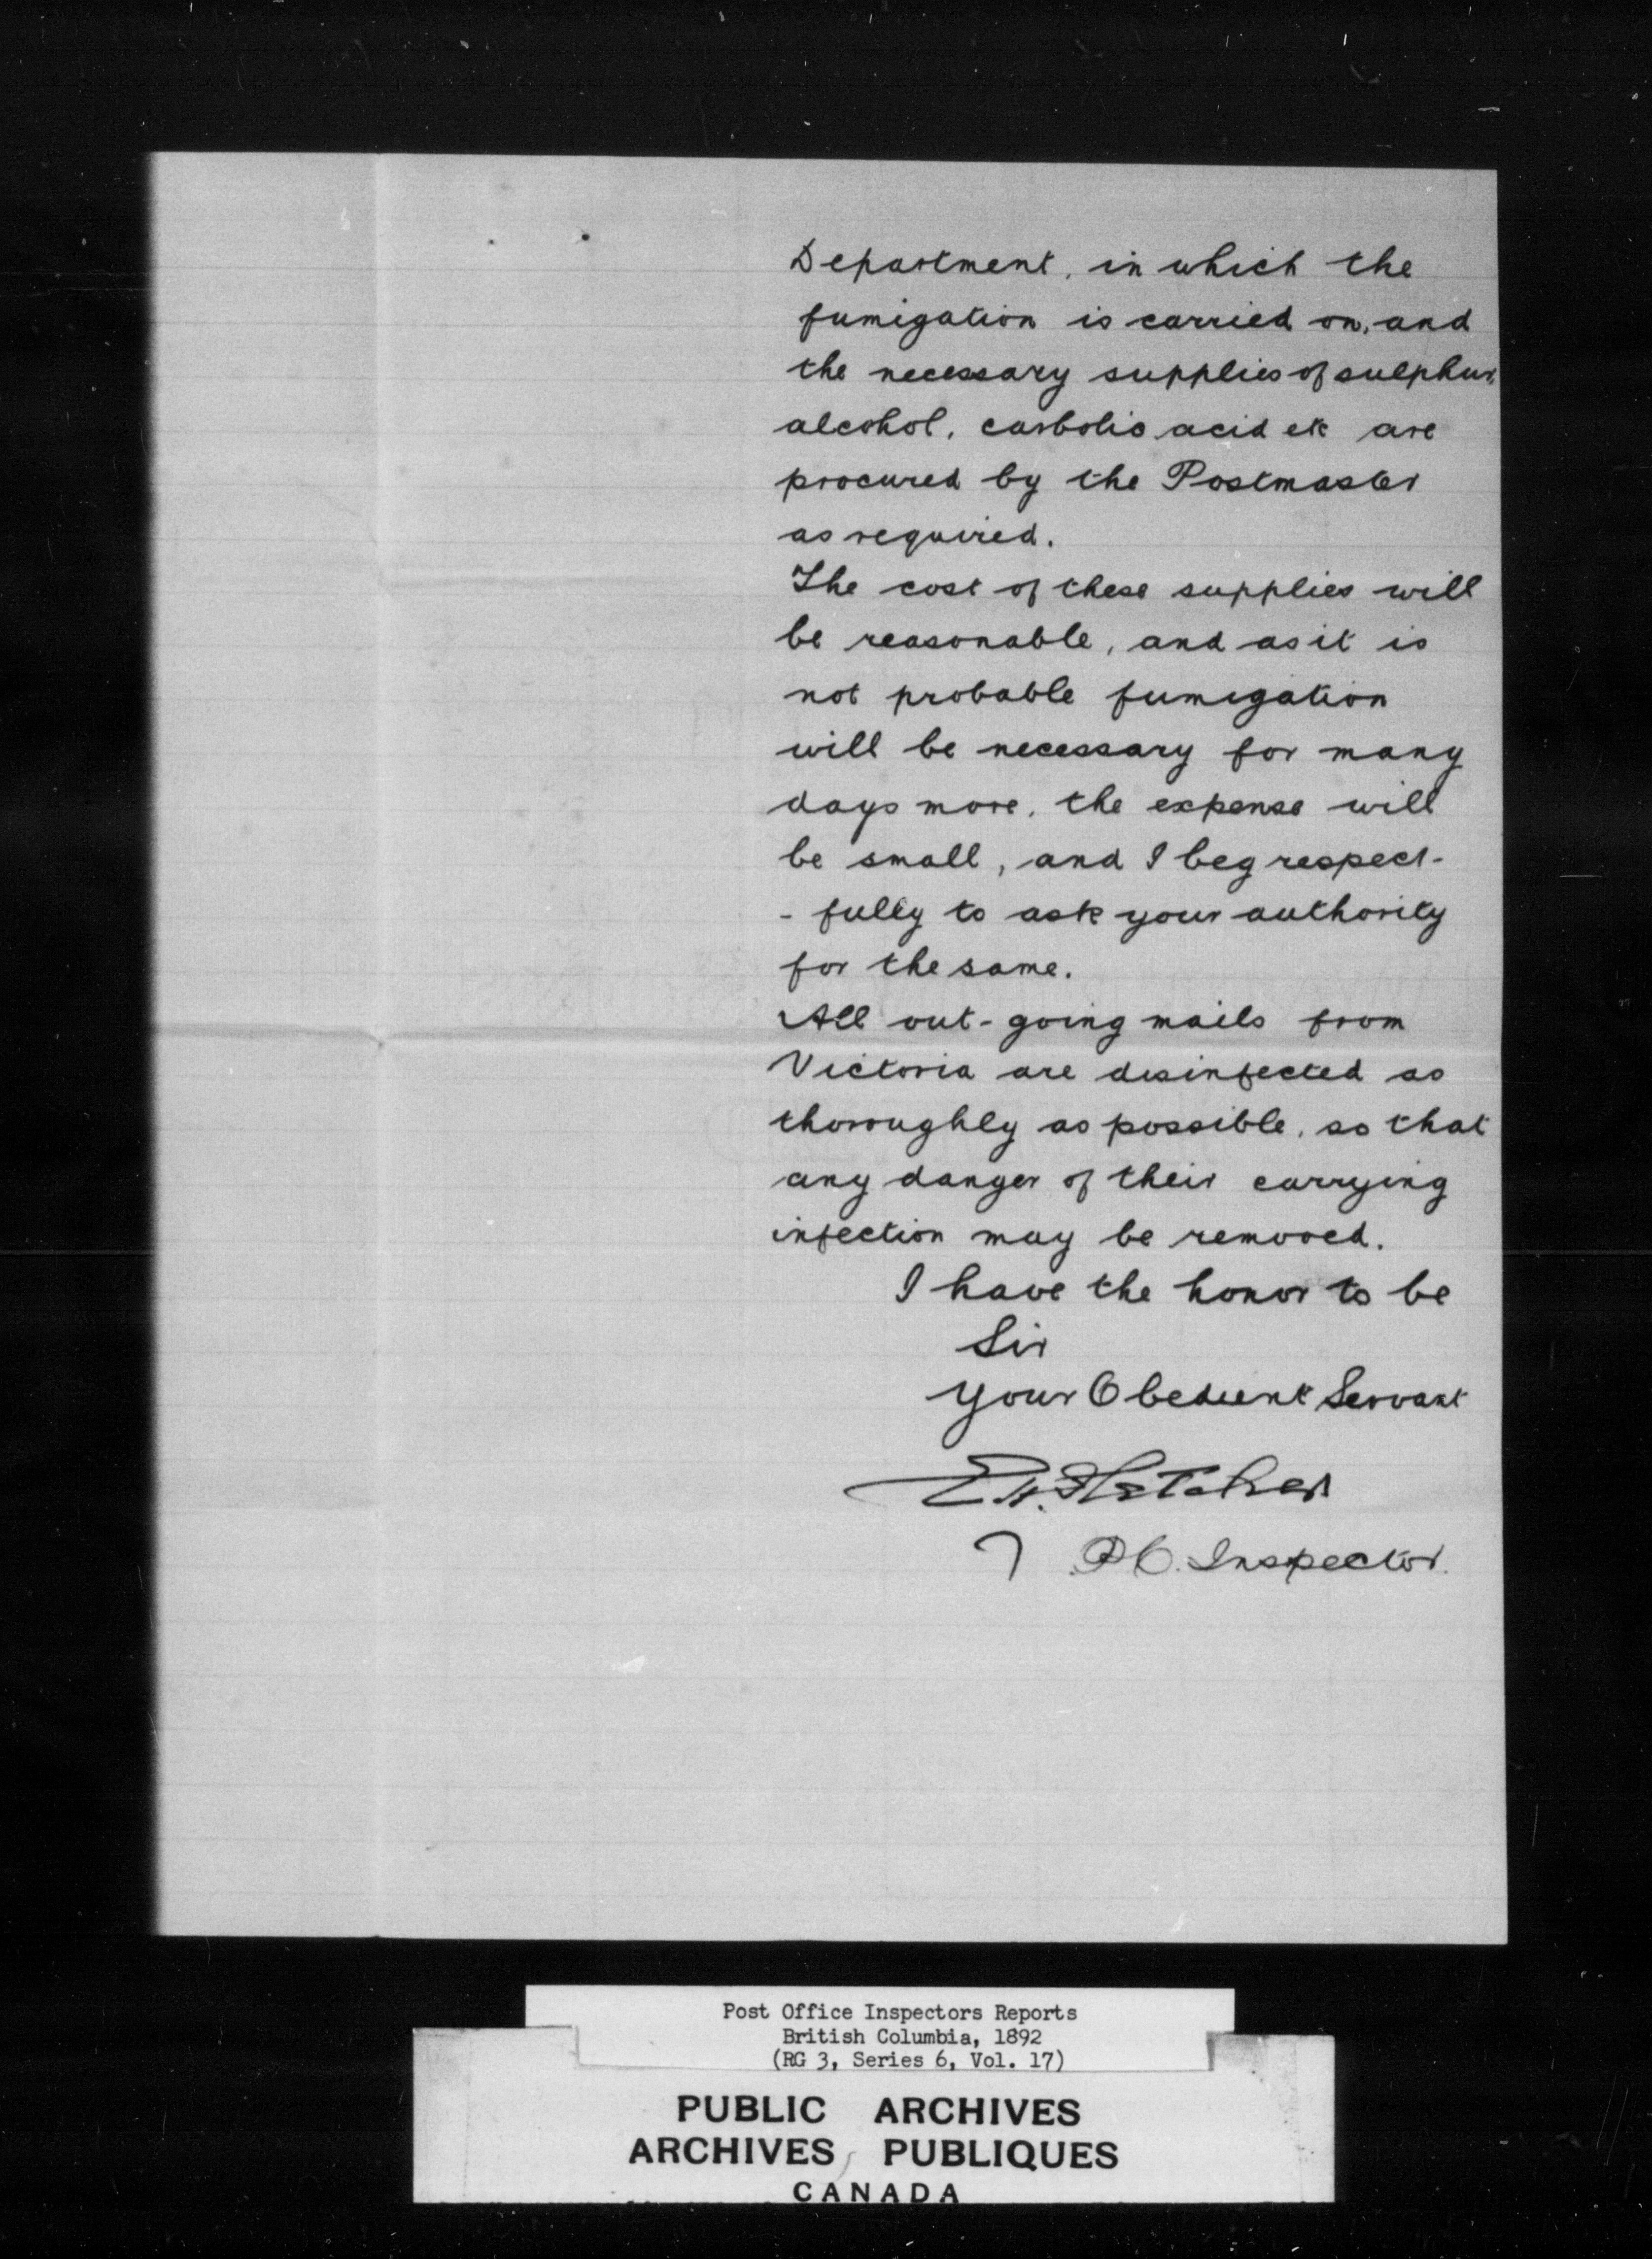 Department, in which the
fumigation is carried on, and
the necessary supplies of sulphur,
alcohol, carbolic acid etc are
procured by the Postmaster
as required.
The cost of these supplies will
be reasonable, and as it is
not probable fumigation
will be necessary for many
days more, the expense will
be small, and I beg respect-
- fully to ask your authority
for the same.
All out-going mails from
Victoria are disinfected as
thoroughly as possible, so that
any danger of their carrying
infection may be removed.
I have the honor to be
Sir
Your Obedient Servant
E.H. Fletcher
P.O. Inspector.
Post Office Inspectors Reports
British Columbia, 1892
(RG 3, Series 6, Vol. 17)
PUBLIC ARCHIVES
ARCHIVES PUBLIQUES
CANADA